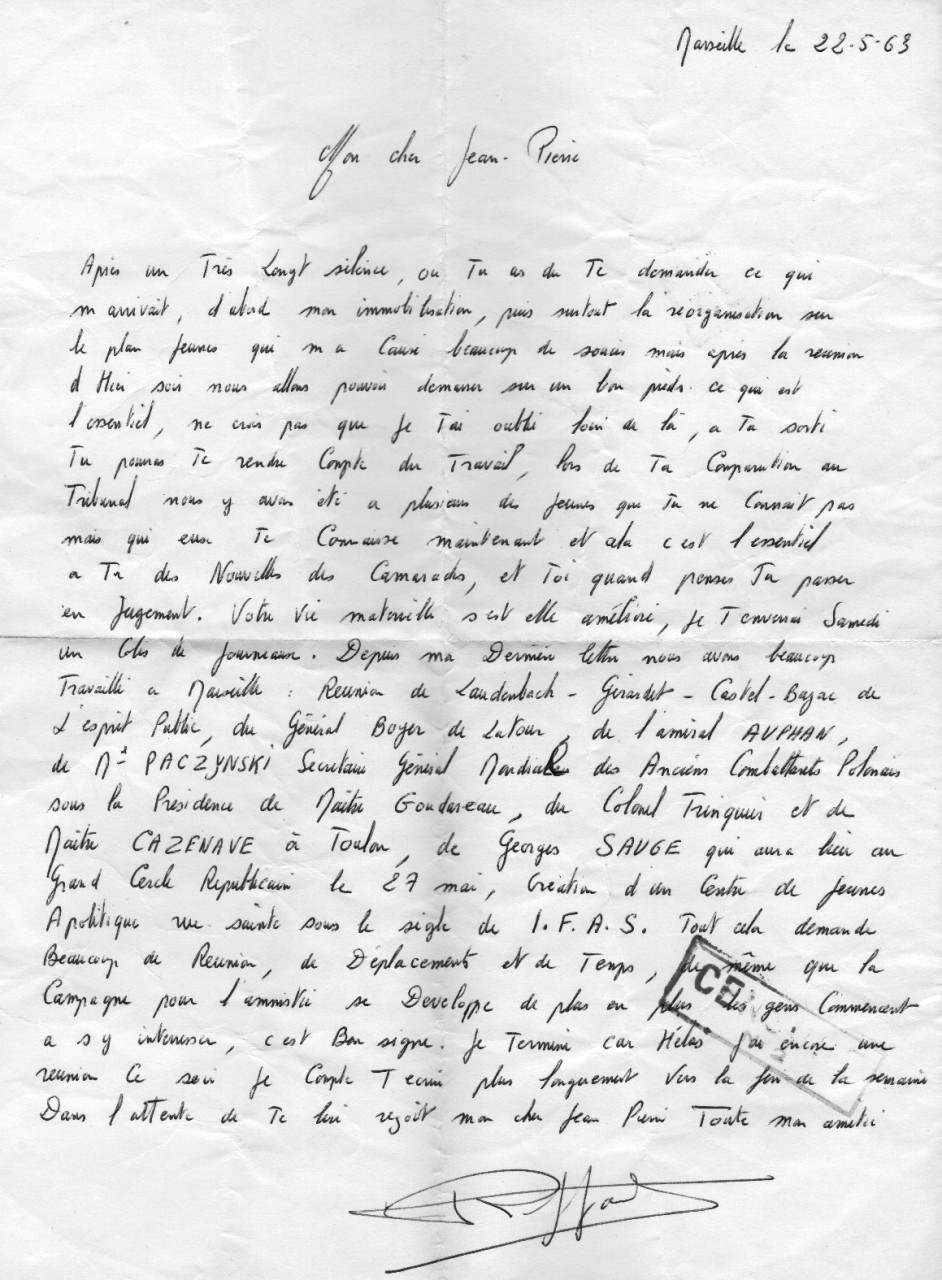 Marseille le 22-5-63
Mon cher Jean-Pierre
Après un Très Longt silence, ou Tu as du Te demander ce qui
m arrivait, d'abord mon immobilisation, puis surtout la réorganisation sur
le plan Jeunes qui m a Causé beaucoup de soucis mais après la reunion
d Hier soir nous allons pouvoir demarrer sur un bon pieds. ce qui est
l'essentiel, ne crois pas que Je T'ai oublié loin de là, a Ta sorti
Tu pourras Te rendre Compte du Travail, lors de Ta Comparution au
Tribunal nous y avon été a plusieurs des Jeunes que Tu ne Connait pas
mais qui eux Te Connaisse maintenant et cela c est l'essentiel
a Tu des Nouvelles des Camarades, et Toi quand penses Tu passer
en Jugement. Votre vie materielle s est elle améliorée, Je T enverrai Samedi
un Colis de Journeaux. Depuis ma Dernière lettre nous avons beaucoup
Travaillé a Marseille : Reunion de Laudenbach - Girardet - Castel-Bajac de
L'esprit Public, du Général Boyer de Latour, de l'amiral AUPHAN,
de Mr PACZYNSKI Secretaire Général Mondiale des Anciens Combattants Polonais
sous la Présidence de Maître Goudareau, du Colonel Trinquier et de
Maître CAZENAVE à Toulon, de Georges SAUGE qui aura lieu au
Grand Cercle Republicain le 27 mai, Création d'un Centre de Jeunes
Apolitique rue sainte sous le sigle de I.F.A.S. Tout cela demande
Beaucoup de Reunion, de Déplacements et de Temps, de même que la
Campagne pour l'amnistie se Developpe de plus en plus les gens Commencent
a s y interresser, c'est Bon signe. Je Termine car Hélas J'ai encore une
reunion Ce soir Je Compte T ecrire plus longuement vers la fin de la semaine
Dans l'attente de Te lire reçoit mon cher Jean Pierre Toute mon amitié